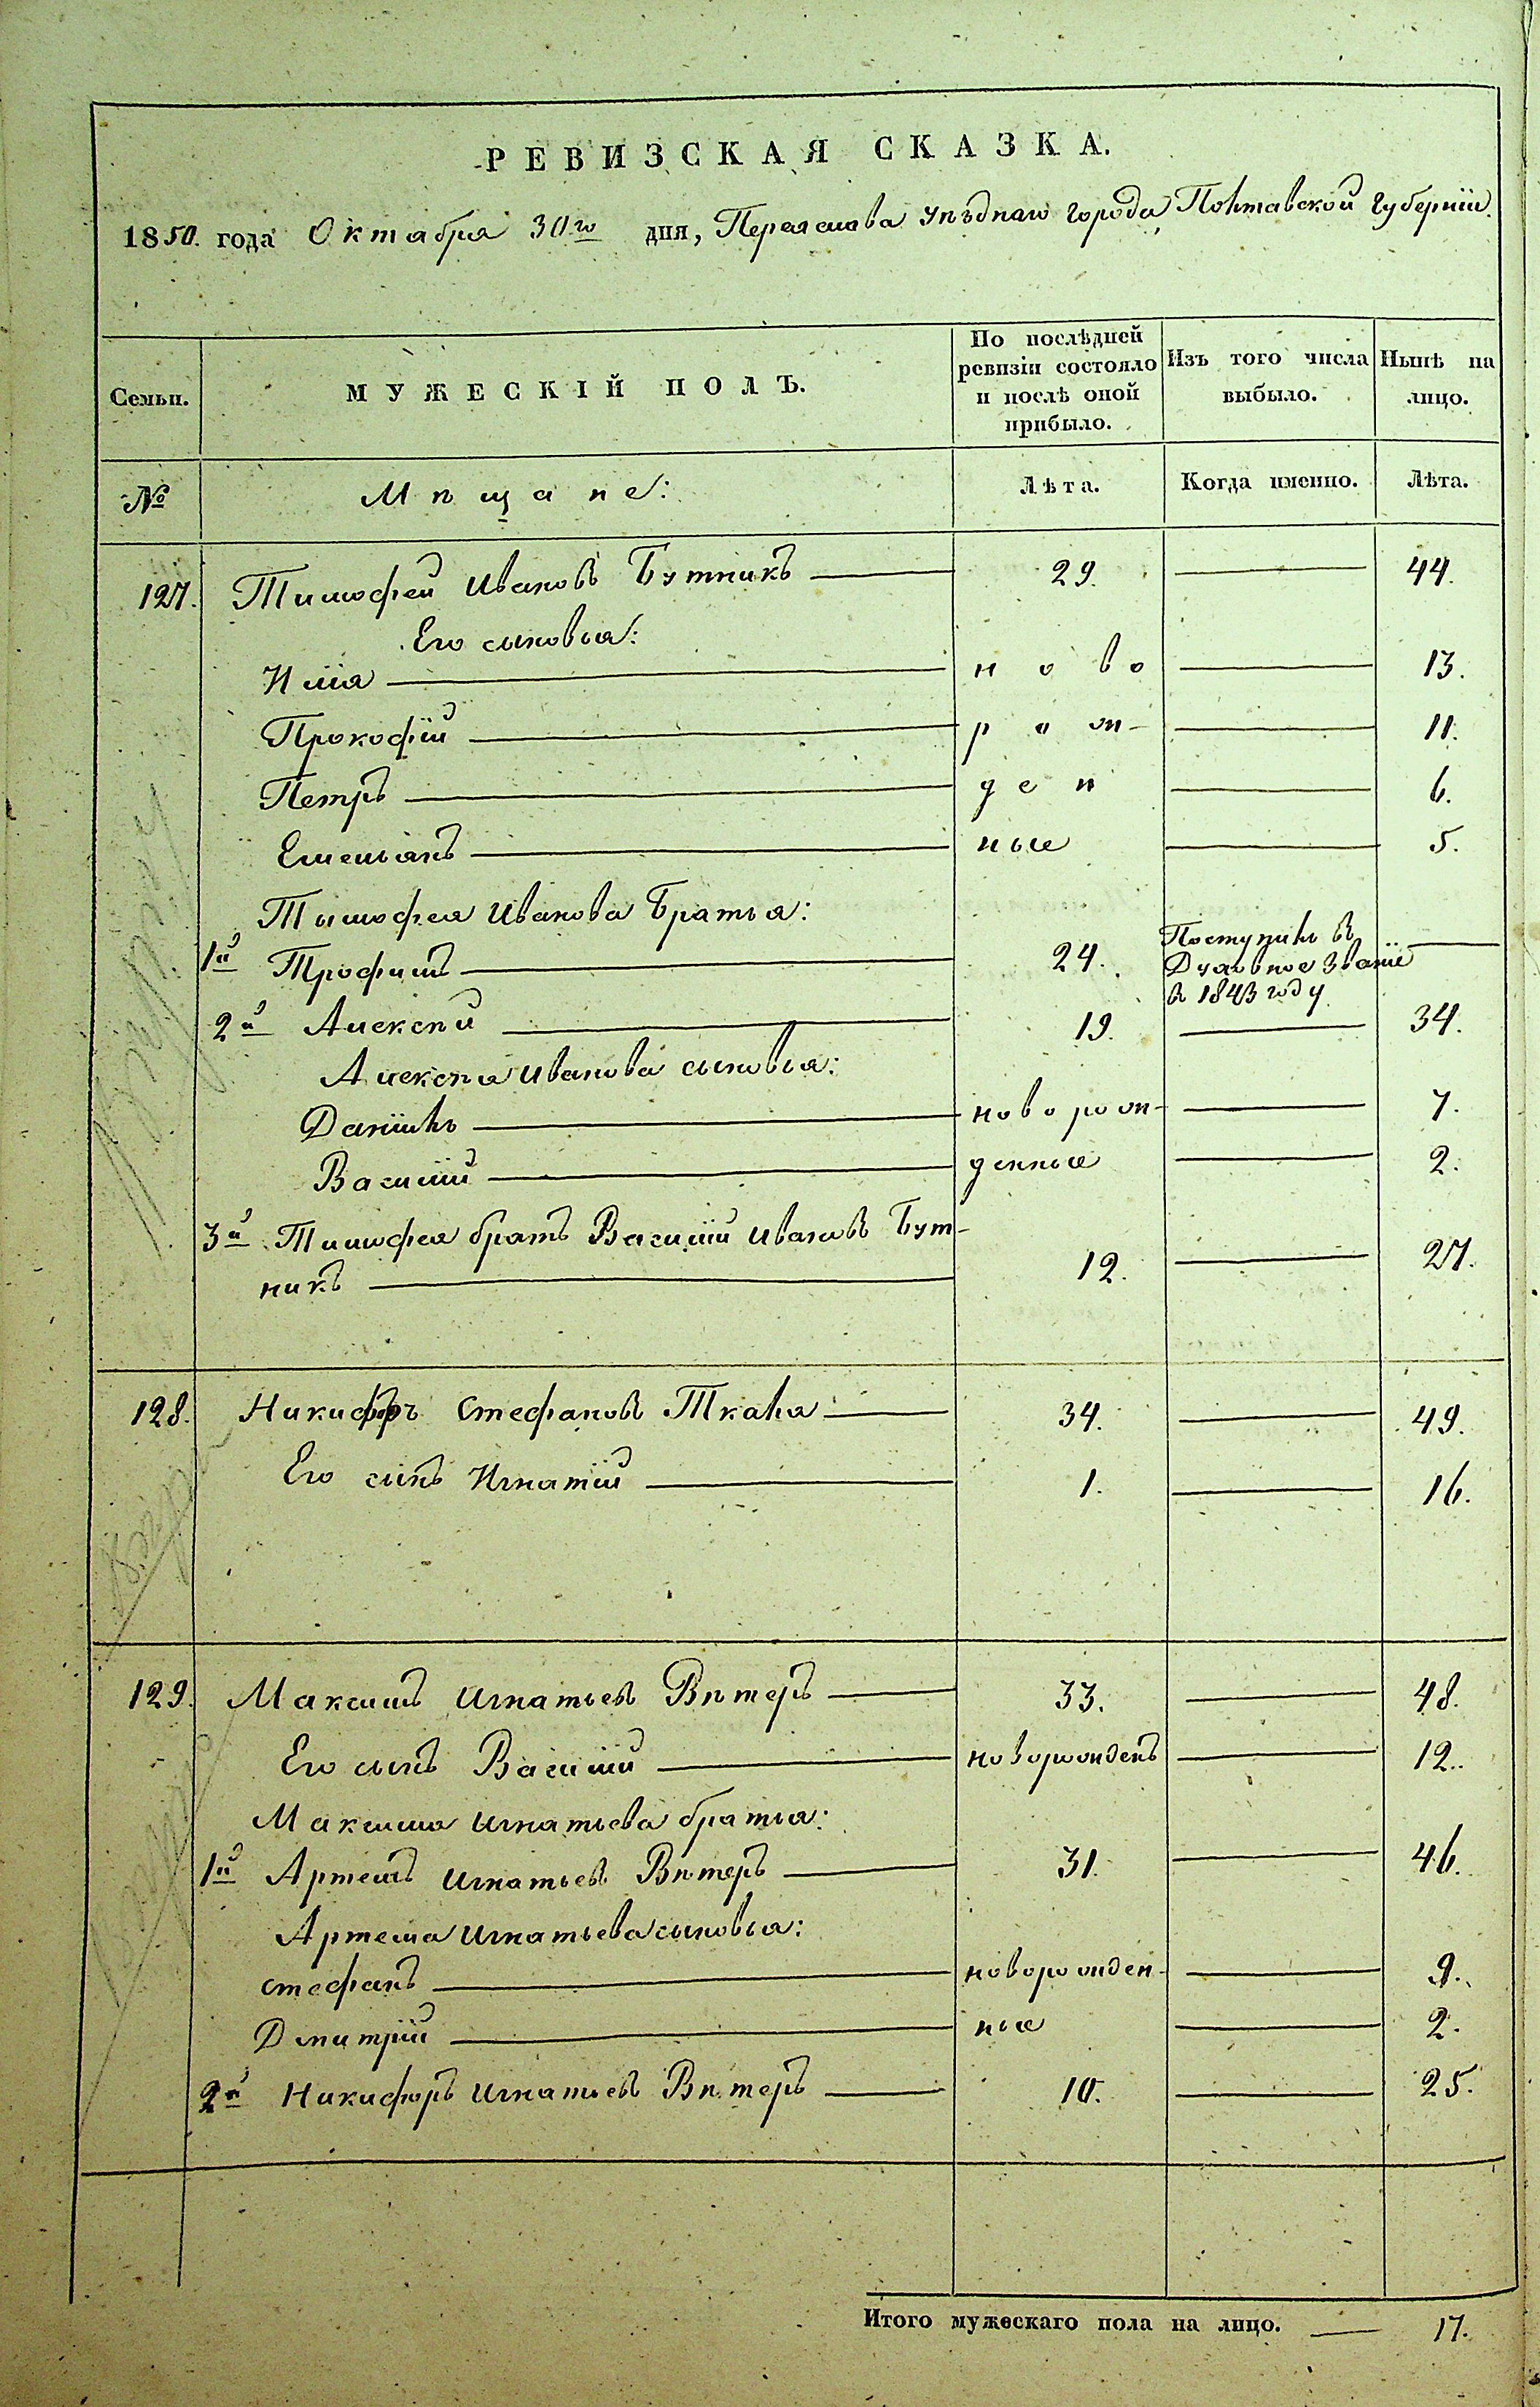 РЕВИЗСКАЯ СКАЗКА.
1850. года Октября 30го дня, Переяслова уѣзднаго города, Полтавской губерніи.
Семьи. МУЖЕСКІЙ ПОЛЪ. По послѣдней ревизіи состояло и послѣ оной прибыло. Изъ того числа выбыло. Нынѣ на лицо.
№ Мѣщане: Лѣта. Когда именно. Лѣта.
127. Тимофей Ивановъ Бутникъ — 29. — 44.
Его сыновья:
Илія — ново — 13.
Прокофій — рож- — 11.
Петръ — ден — 6.
Емельянъ — ные — 5.
Тымофея Иванова Братья:
1й Трофимъ — 24. Поступилъ въ Духовное Званіе въ 1843 году —
2й Алексѣй — 19. — 34.
Алексѣя Иванова сыновья:
Даніилъ — новорож- — 7.
Василій — денные — 2.
3й Тимофея братъ Василій Ивановъ Бут-
никъ — 12. — 27.
128. Никифоръ Стефановъ Ткаля — 34. — 49.
Его сынъ Игнатій — 1. — 16.
129. Максимъ Игнатьевъ Вѣтеръ — 33. — 48.
Его сынъ Василій — новорожденъ — 12.
Максима Игнатьева братья:
1й Артемъ Игнатьевъ Вѣтеръ — 31. — 46.
Артема Игнатьева сыновья:
Стефанъ — новорожден- — 9.
Дмитрій — ные — 2.
2й Никифоръ Игнатьевъ Вѣтеръ — 10. — 25.
Итого мужескаго пола на лицо. — 17.